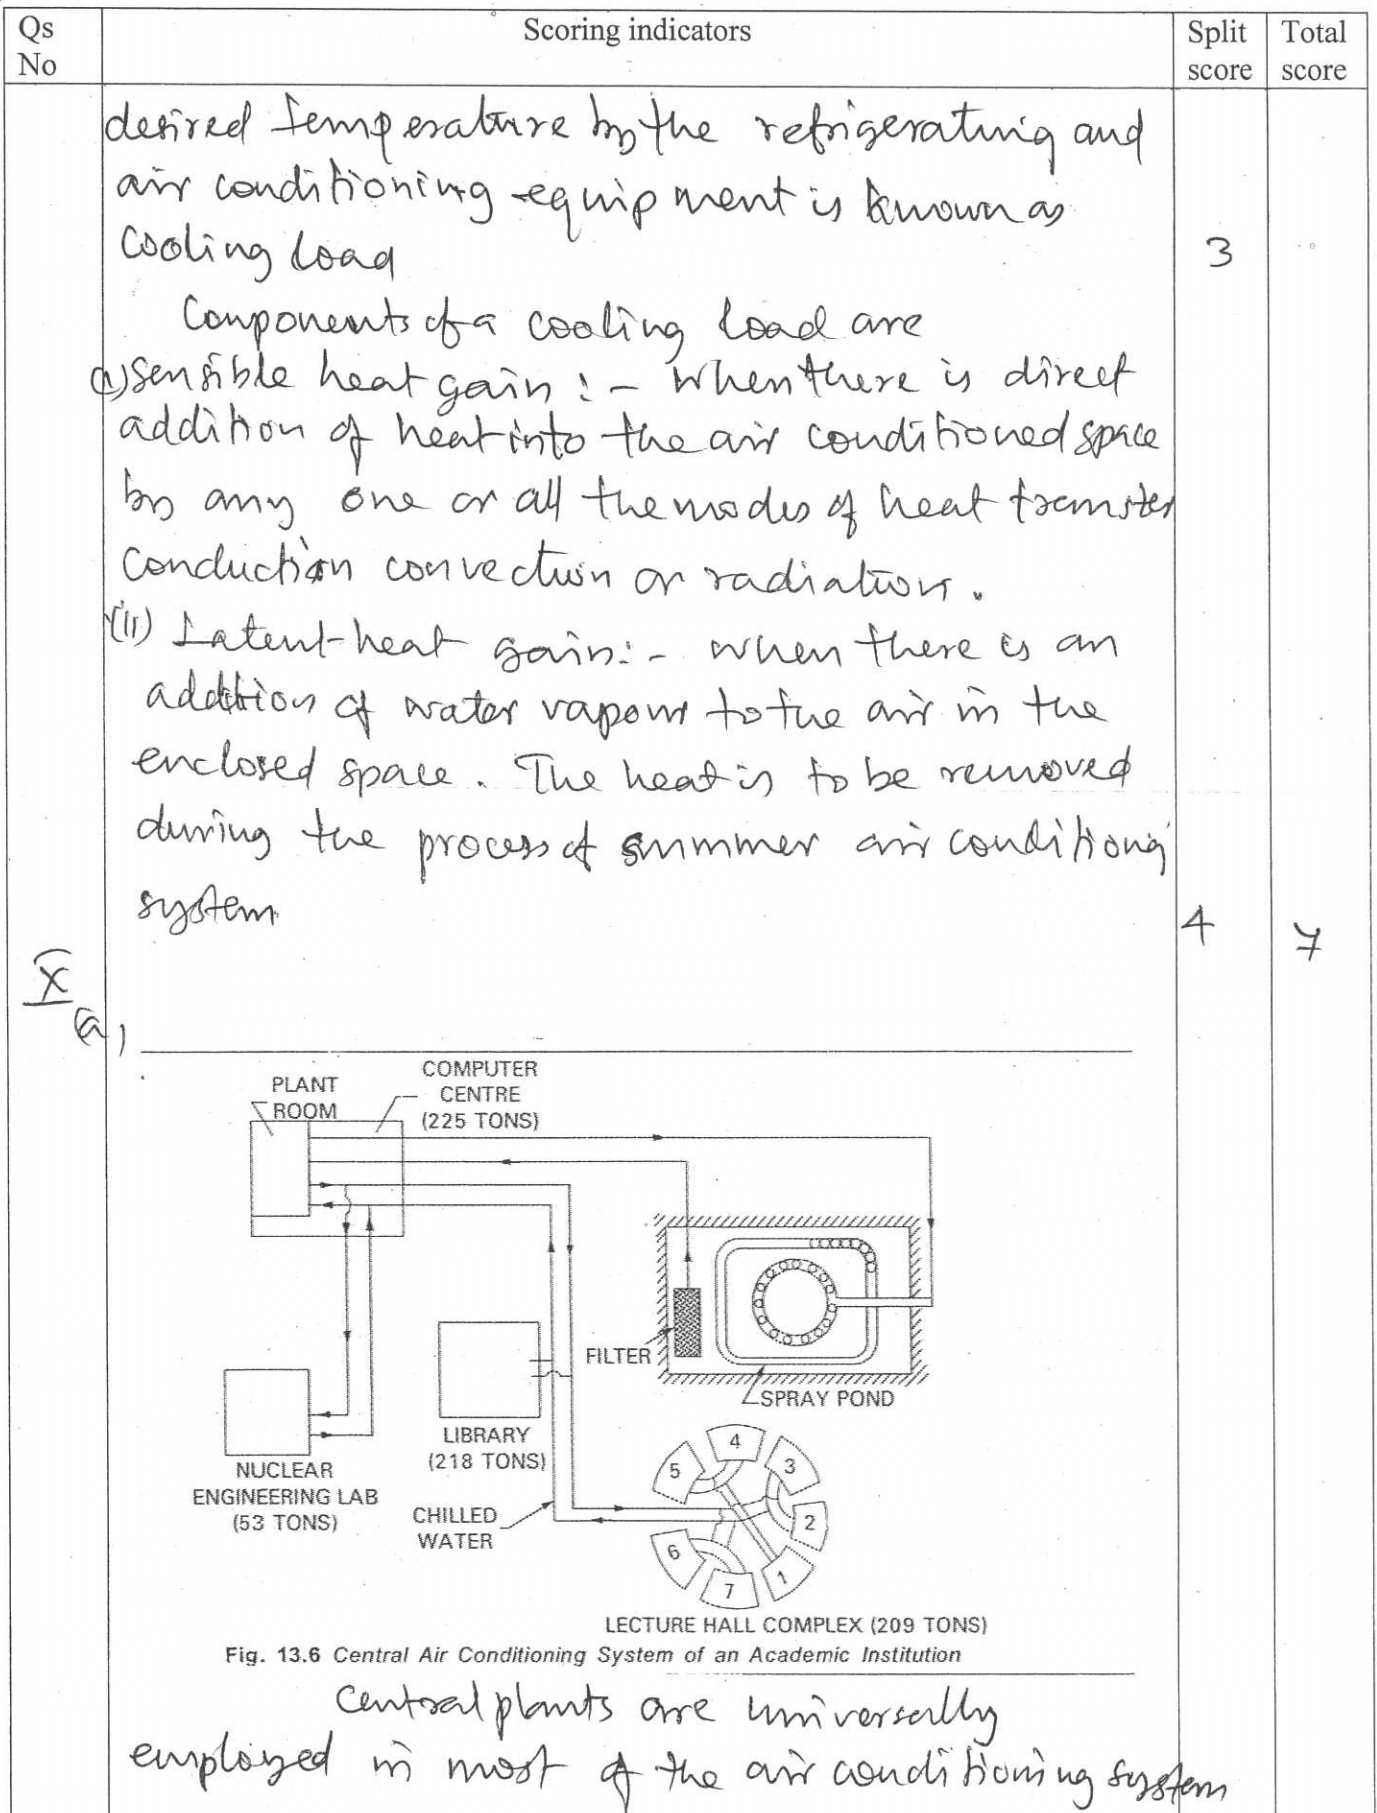 Qs
No
Scoring indicators
Split
score
Total
score
desired temperature by the refrigerating and
air conditioning equipment is known as
Cooling load
3
Components of a cooling load are
(i) Sensible heat gain :- When there is direct
addition of heat into the air conditioned space
by any one or all the modes of heat transfer
conduction convection or radiation.
(ii) Latent heat gain:- when there is an
addition of water vapour to the air in the
enclosed space. The heat is to be removed
during the process of summer air conditioning
system
4
7
X
(a)
PLANT
ROOM
COMPUTER
CENTRE
(225 TONS)
FILTER
SPRAY POND
LIBRARY
(218 TONS)
NUCLEAR
ENGINEERING LAB
(53 TONS)
CHILLED
WATER
4
5
3
2
6
7
1
LECTURE HALL COMPLEX (209 TONS)
Fig. 13.6 Central Air Conditioning System of an Academic Institution
Central plants are universally
employed in most of the air conditioning system